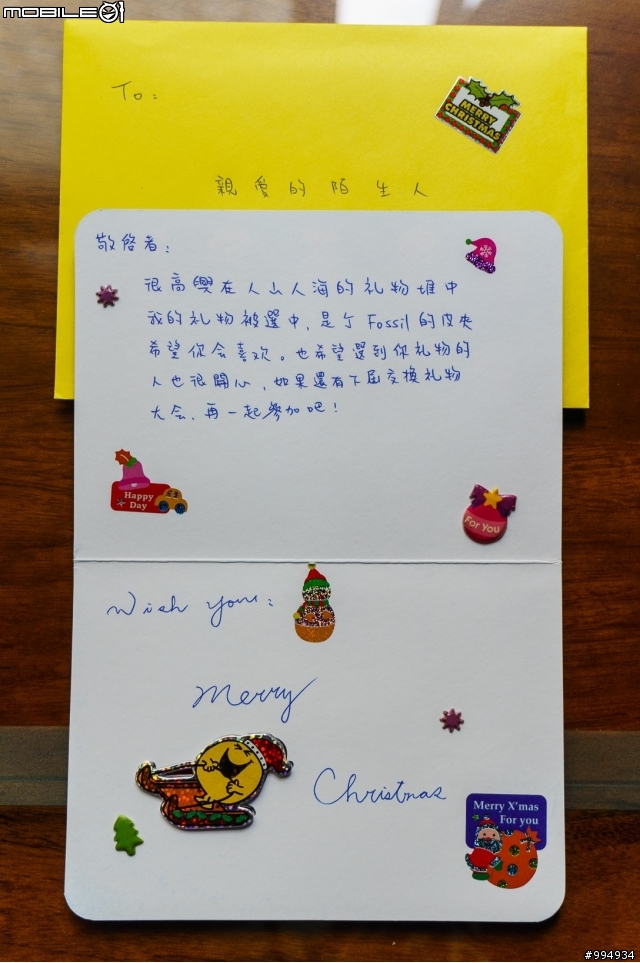 MOBILE01
To:
MERRY
CHRISTMAS
親愛的陌生人
敬啓者:
很高興在人山人海的礼物堆中
我的礼物被選中, 是个Fossil的皮夾
希望你会喜欢。也希望選到你礼物的
人也很開心, 如果還有下屆交換礼物
大会, 再一起參加吧!
Happy
Day
For You
Wish you:
Merry
Christmas
Merry X'mas
For you
#994934